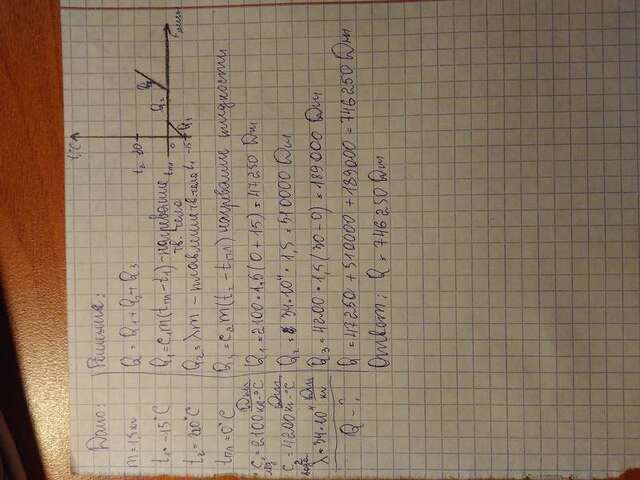 Дано:
m = 1,5 кг
t₁ = -15°C
t₂ = 30°C
tпл = 0°C
Cлёд = 2100 Дж/кг·°C
Cвода = 4200 Дж/кг·°C
λ = 34·10⁴ Дж/кг
Q - ?
Решение:
Q = Q₁ + Q₂ + Q₃
Q₁ = c₁m(tпл - t₁) - нагревание тв. тела
Q₂ = λm - плавление тв. тела
Q₃ = c₂m(t₂ - tпл) нагревание жидкости
Q₁ = 2100 · 1,5 (0 + 15) = 47250 Дж
Q₂ = 34·10⁴ · 1,5 = 510000 Дж
Q₃ = 4200 · 1,5 (30 - 0) = 189000 Дж
Q = 47250 + 510000 + 189000 = 746250 Дж
Ответ: Q = 746250 Дж
t,°C
t₂
tпл 0
t₁ -15
Q₁
Q₂
Q₃